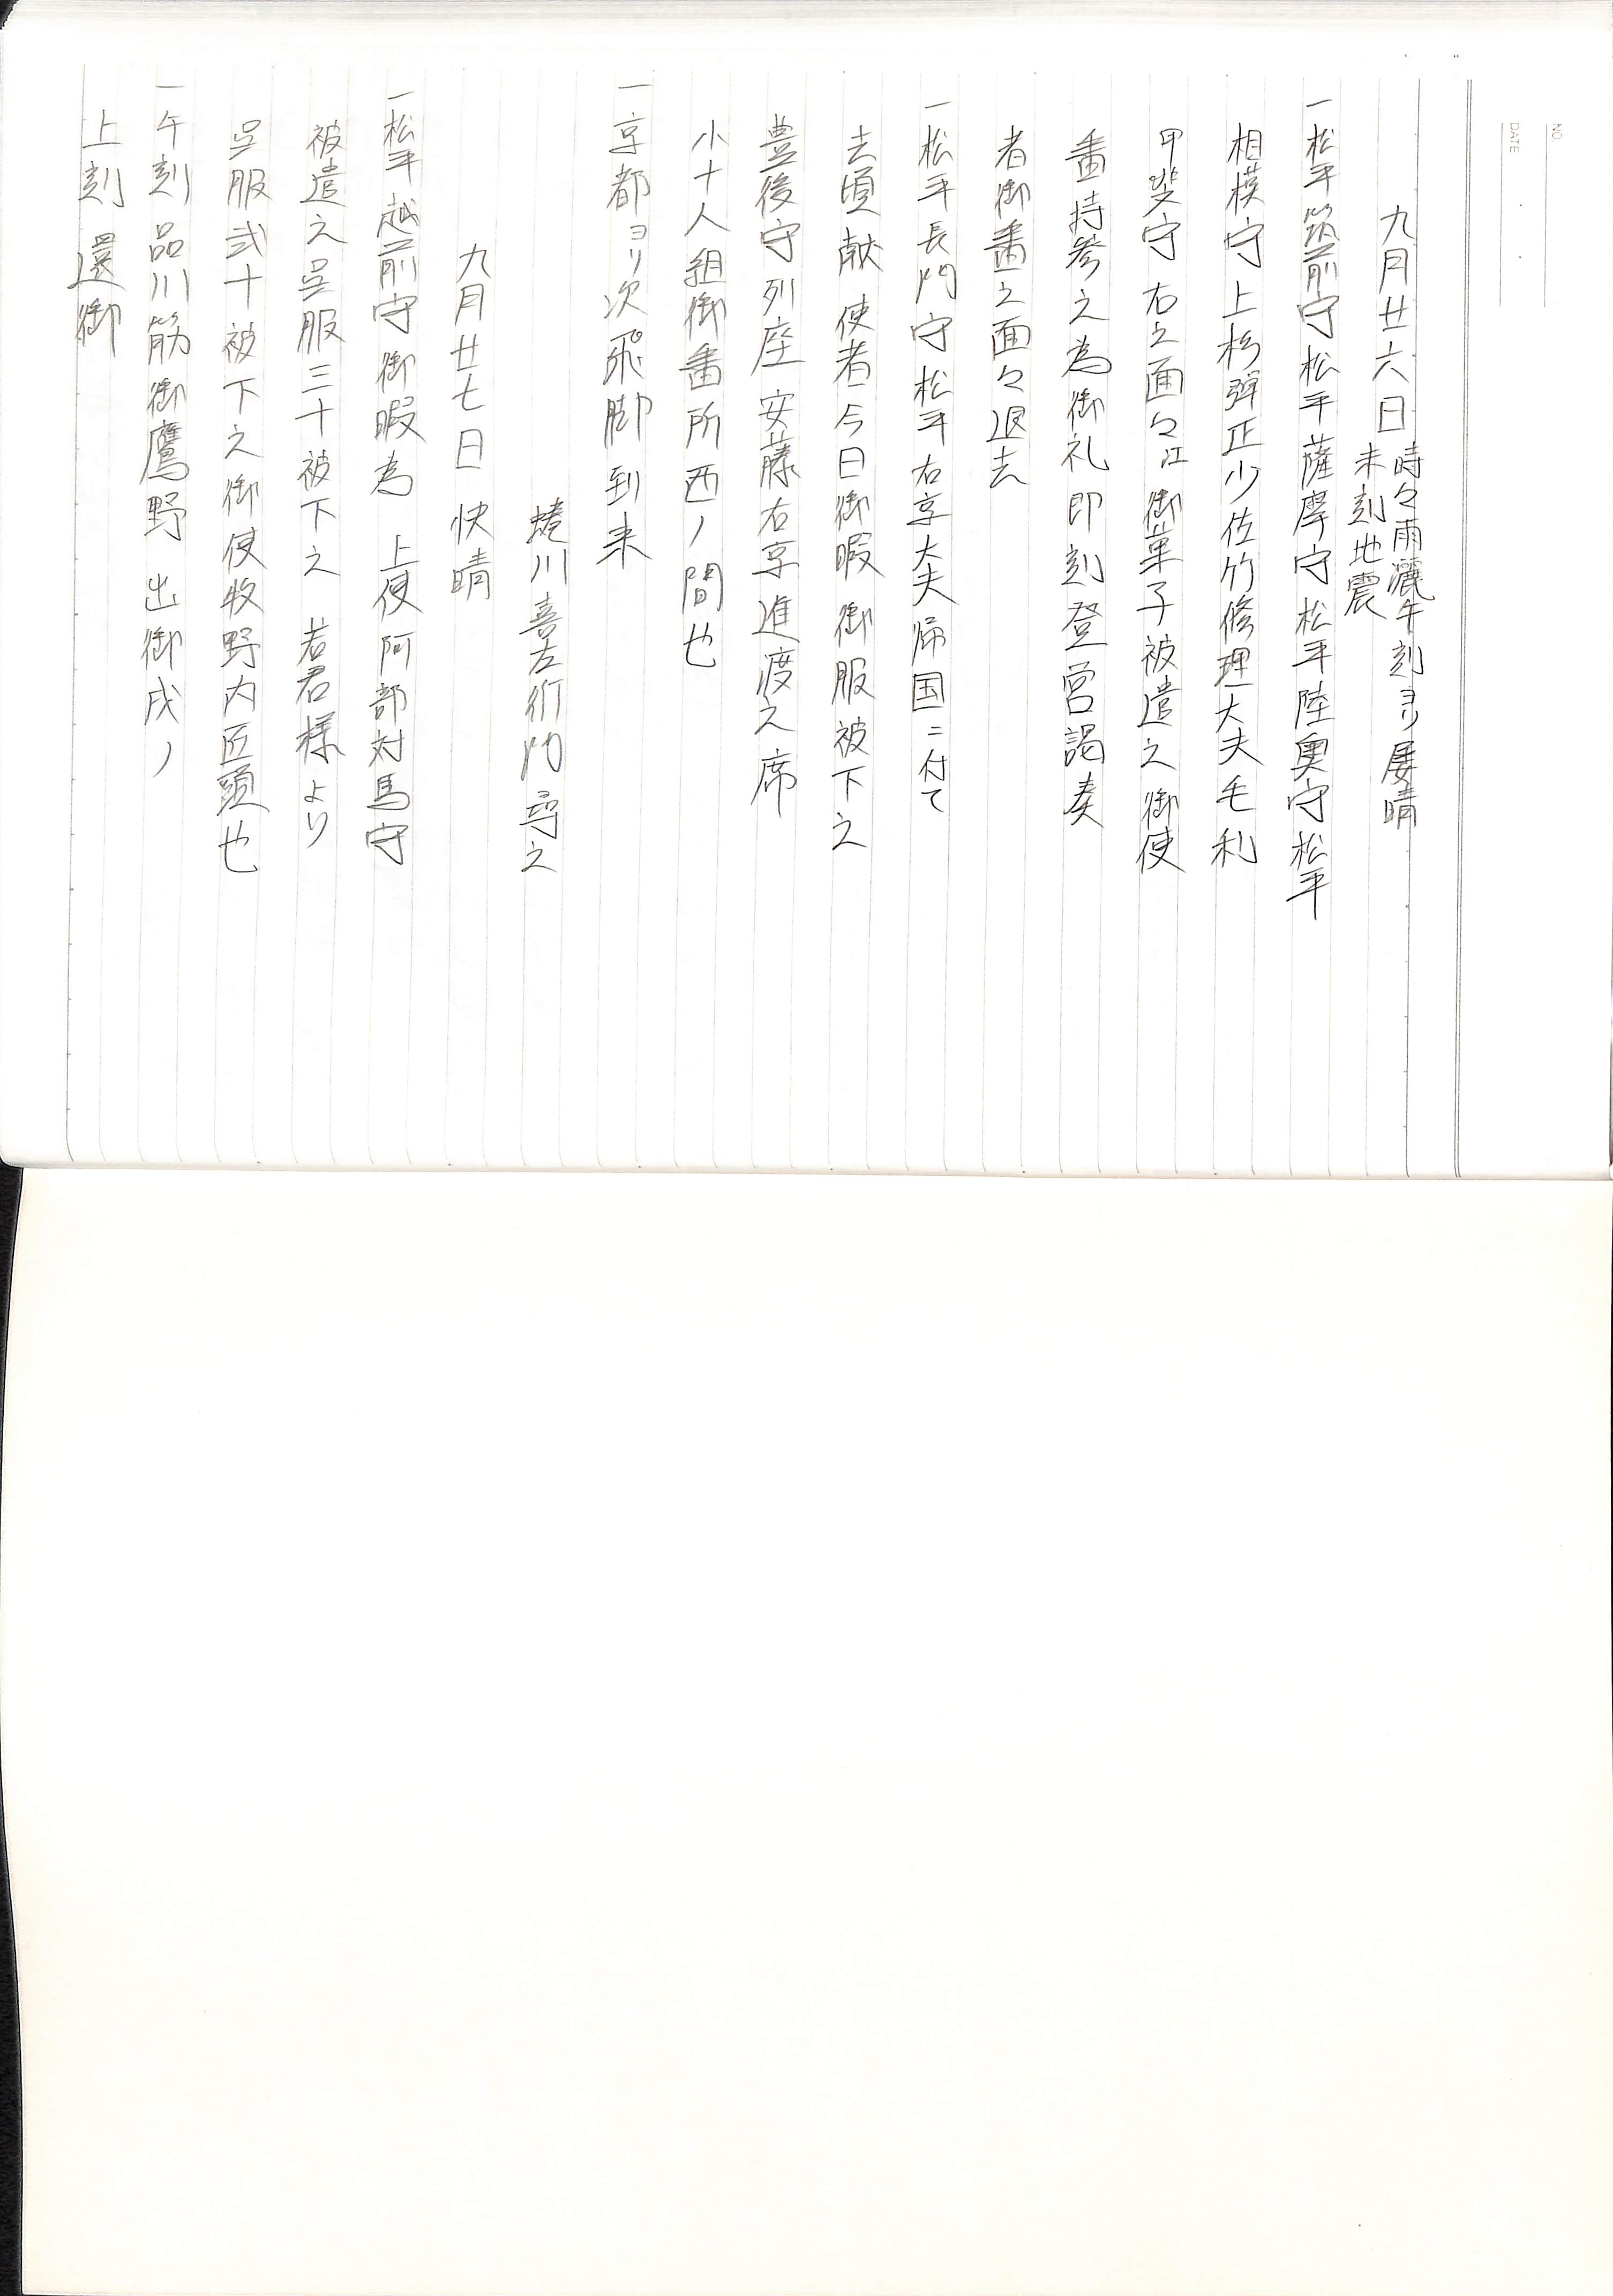 NO.
DATE
九月廿六日
時々雨灑午刻ヨリ屡晴
未刻地震
一松平筑前守松平薩摩守松平陸奥守松平
相模守上杉弾正少佐竹修理大夫毛利
甲斐守右之面々江御菓子被遣之御使
番持参之為御礼即刻登営謁奏
者御番之面々退去
一松平長門守松平右京大夫帰国ニ付て
去頃献使者今日御暇御服被下之
豊後守列座安藤右京進渡之席
小十人組御番所西ノ間也
一京都ヨリ次飛脚到来
蜷川喜左衛門尋之
九月廿七日 快晴
一松平越前守御暇為 上使阿部対馬守
被遣之呉服三十被下之 若君様より
呉服弐十被下之御使牧野内匠頭也
一午刻品川筋御鷹野 出御戌ノ
上刻 還御